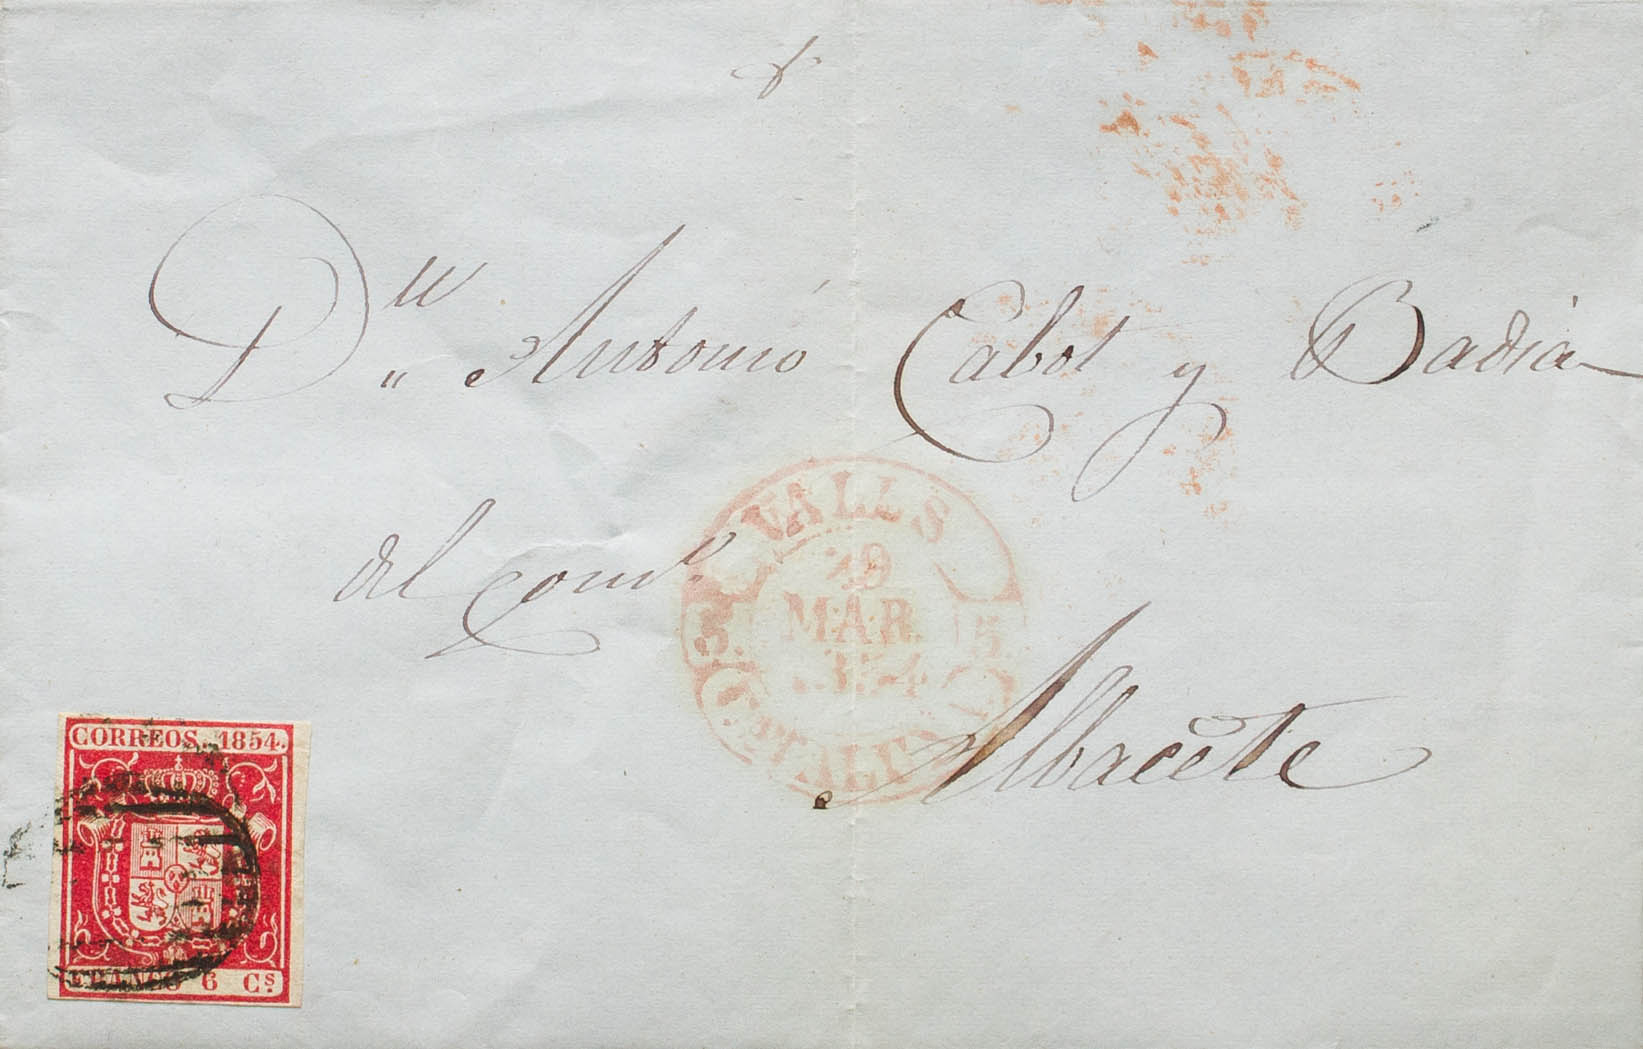 Dn Antonio Cabot y Badia
del Como
Albacete
VALLS
19
MAR.
5. 5.
CATALUÑA
CORREOS 1854.
FRANCO 6 Cs.